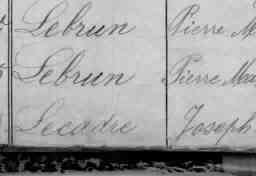 Lebrun Pierre M
Lebrun Pierre Ma
Lecadre Joseph